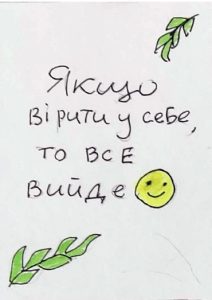 Якщо
вірити у себе,
то все
вийде